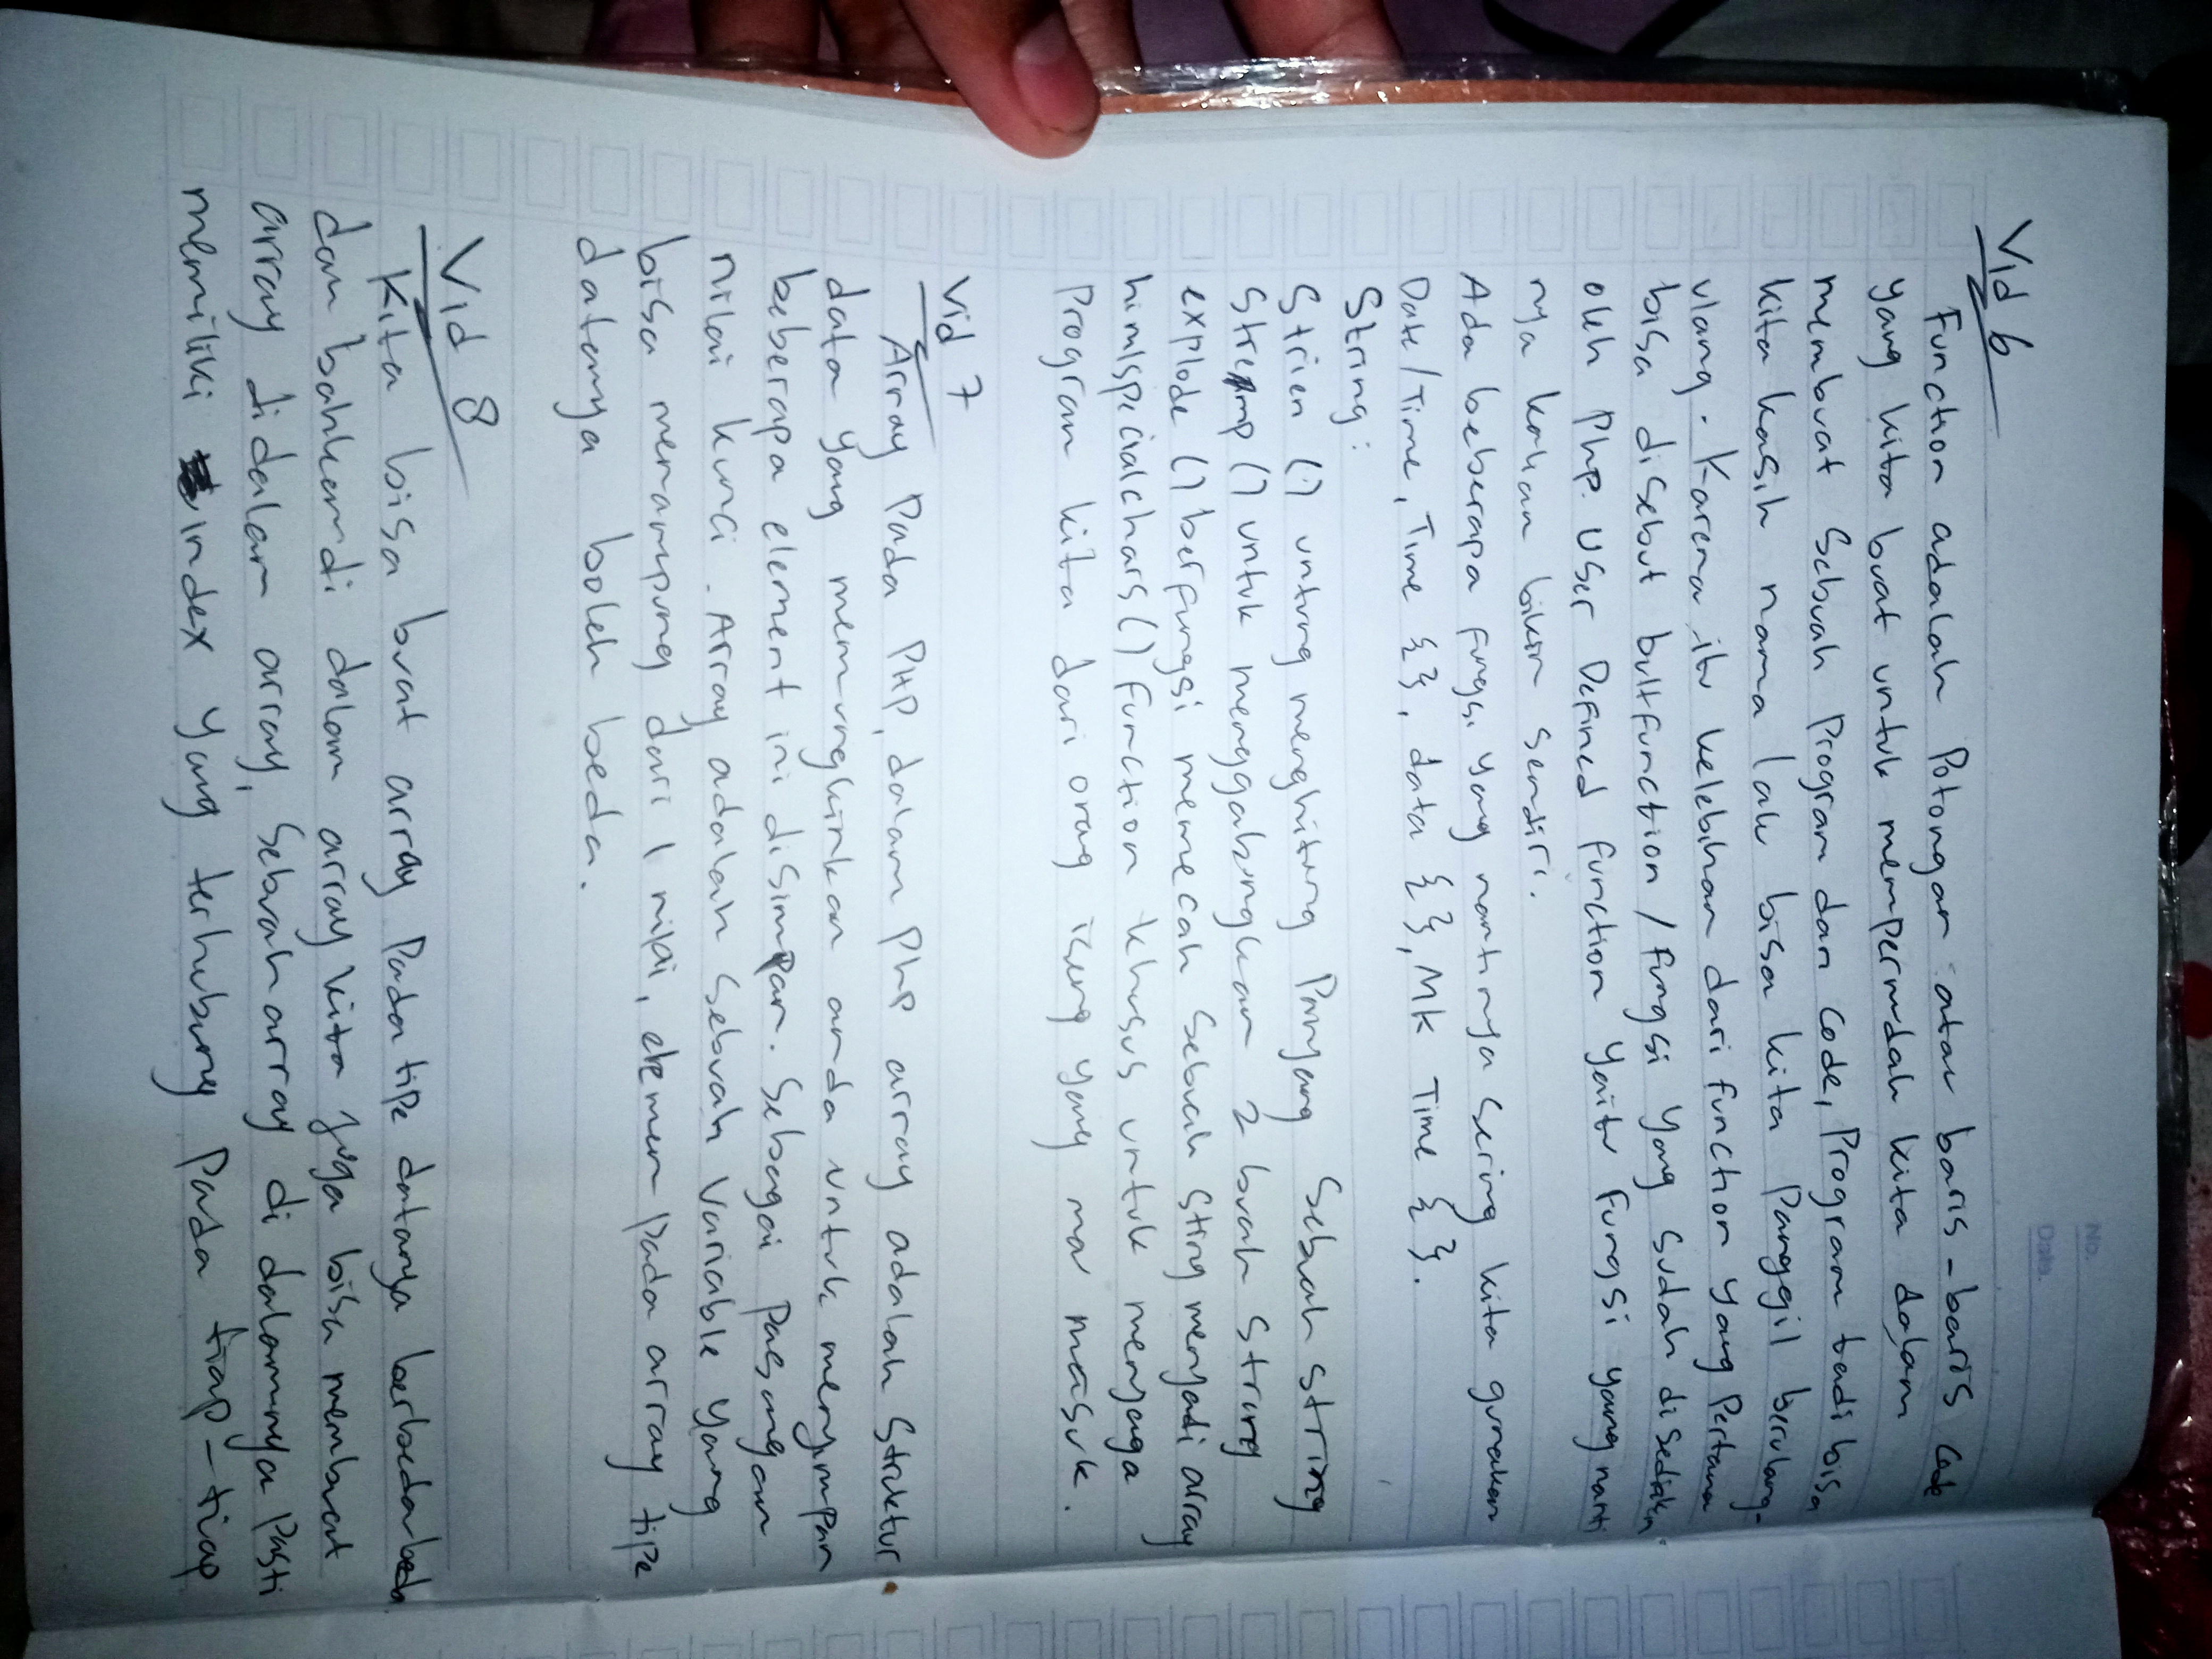 No.
Date.
Vid 6
Function adalah Potongan atau baris-baris Code
yang kita buat untuk mempermudah kita dalam
membuat Sebuah Program dan Code, Program tadi bisa
kita kasih nama lalu bisa kita Panggil berulang-
ulang. Karena itu kelebihan dari function yang Pertama
bisa disebut builtfunction / fungsi yang sudah disediakan
oleh Php. User Defined function yaitu Fungsi yang nanti
nya kalian bikin sendiri.
Ada beberapa fungsi yang nantinya sering kita gunakan
Date/Time, Time {}, data {}, MK Time {}.
String:
Strien () untung menghitung Panyang Sebuah string
Stremp () untuk menggabungkan 2 buah String
explode () berfungsi memecah Sebuah Sting menyadi array
himlspicialchars() function khusus untuk menyaga
Program kita dari orag iseng yang mau masuk.
Vid 7
Array Pada PHP, dalam Php array adalah Struktur
data yang memungkinkan anda untuk menyimpan
beberapa element ini disimpan. Sebagai Pasangan
nilai kunci. Array adalah Sebuah Variable yang
bisa menampung dari 1 nilai, elemen Pada array tipe
datanya boleh beda.
Vid 8
Kita bisa buat array Pada tipe datanya berbeda beda
dan bahkan di dalam array kita juga bisa membuat
array didalam array, Sebuah array di dalamnya Pasti
memiliki index yang terhubung Pada tiap-tiap